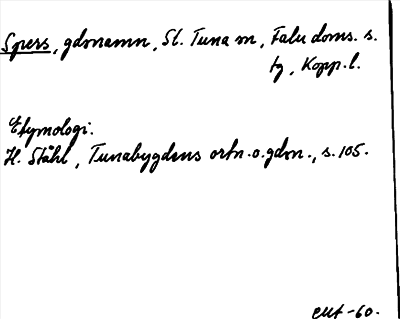 Spers, gdmnamn, St. Tuna sn, Falu doms. s.
tg, Kopp. l.
Etymologi.
H. Ståhl, Tunabygdens ortn. o. gdn., s. 105.
-60.